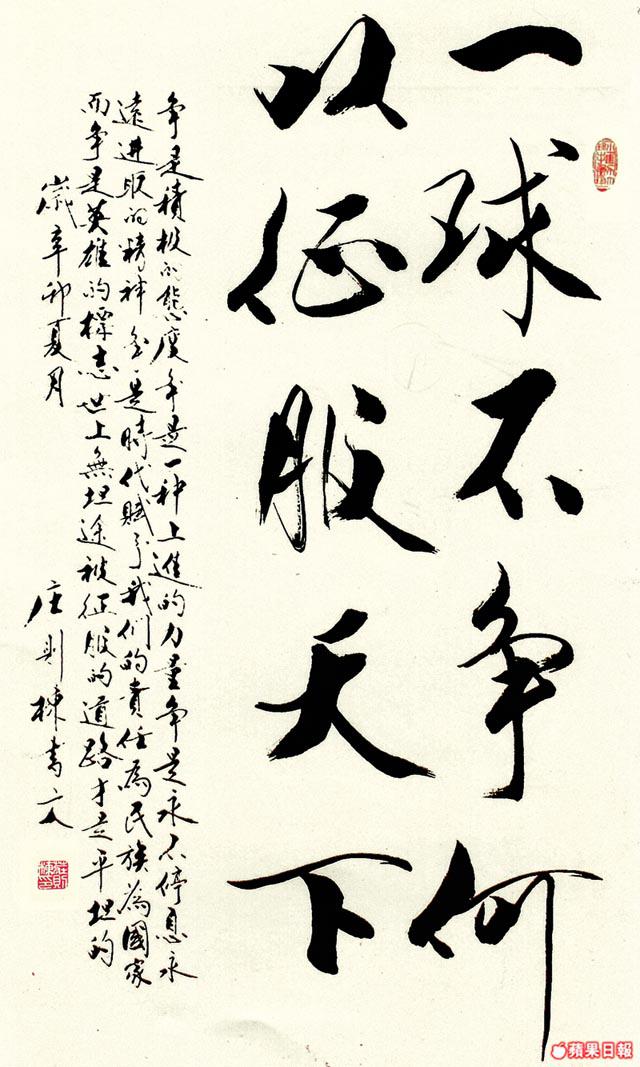 一球不争何
以征服天下
争是積极的態度争是一种上進的力量争是永不停息永
遠進取的精神争是時代賦予我们的責任為民族為國家
而争是英雄的標志世上無坦途被征服的道路才是平坦的
歲辛卯夏月
庄則棟書文
蘋果日報